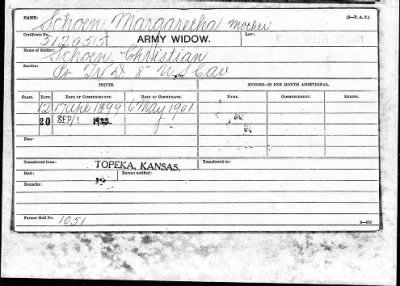 NAME: Schoen Margaretha Mother (3-P. A. 7.)
Certificate No. 512951 ARMY WIDOW. Law:
Name of Soldier: Schoen Christian
Service: 8" U.S. Cav
ISSUE. MINORS—$2 PER MONTH ADDITIONAL.
CLASS. RATE. DATE OF COMMENCEMENT. DATE OF CERTIFICATE. NAME. COMMENCEMENT. ENDING.
12 17 Dec 1899 6 May 1901
20 SEP/1 1922
Fee:
Transferred from: TOPEKA, KANSAS. Transferred to:
Died: Bureau notified:
Remarks:
Former Roll No. 1051